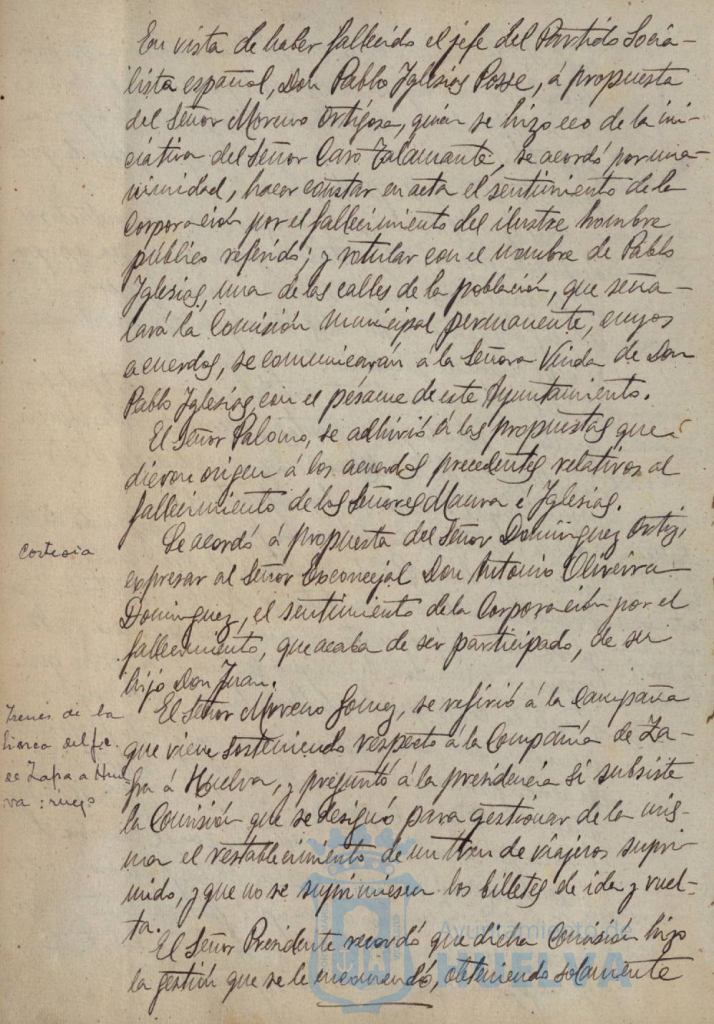 En vista de haber fallecido el jefe del Partido Socia-
lista español, Don Pablo Iglesias Posse, á propuesta
del Señor Moreno Ortigosa, quien se hizo eco de la ini-
ciativa del Señor Caro Talamante, se acordó por una-
nimidad, hacer constar en acta el sentimiento de la
Corporación por el fallecimiento del ilustre hombre
público referido; y rotular con el nombre de Pablo
Iglesias, una de las calles de la población, que seña-
lará la Comisión municipal permanente, cuyos
acuerdos, se comunicarán á la Señora Viuda de Don
Pablo Iglesias, con el pésame de este Ayuntamiento.
El Señor Palomo, se adhirió á las propuestas que
dieron origen á los acuerdos precedentes relativos al
fallecimiento de los Señores Maura é Iglesias.
Cortesia
Se acordó á propuesta del Señor Domínguez Ortiz,
expresar al Señor Exconcejal Don Antonio Oliveira
Domínguez, el sentimiento de la Corporación por el
fallecimiento, que acaba de ser participado, de su
hijo Don Juan.
Trenes de la
linea del fc.
de Zafra a Huel-
va: ruego
El Señor Moreno Gomez, se refirió á la campaña
que viene sosteniendo respecto á la Compañía de Za-
fra á Huelva, y preguntó á la presidencia si subsiste
la Comisión que se designó para gestionar de la mis-
ma el restablecimiento de un tren de viajeros supri-
mido, y que no se suprimiesen los billetes de ida y vuel-
ta.
El Señor Presidente recordó que dicha Comisión hizo
la gestión que se le encomendó, obteniendo solamente
Ayuntamiento de
HUELVA